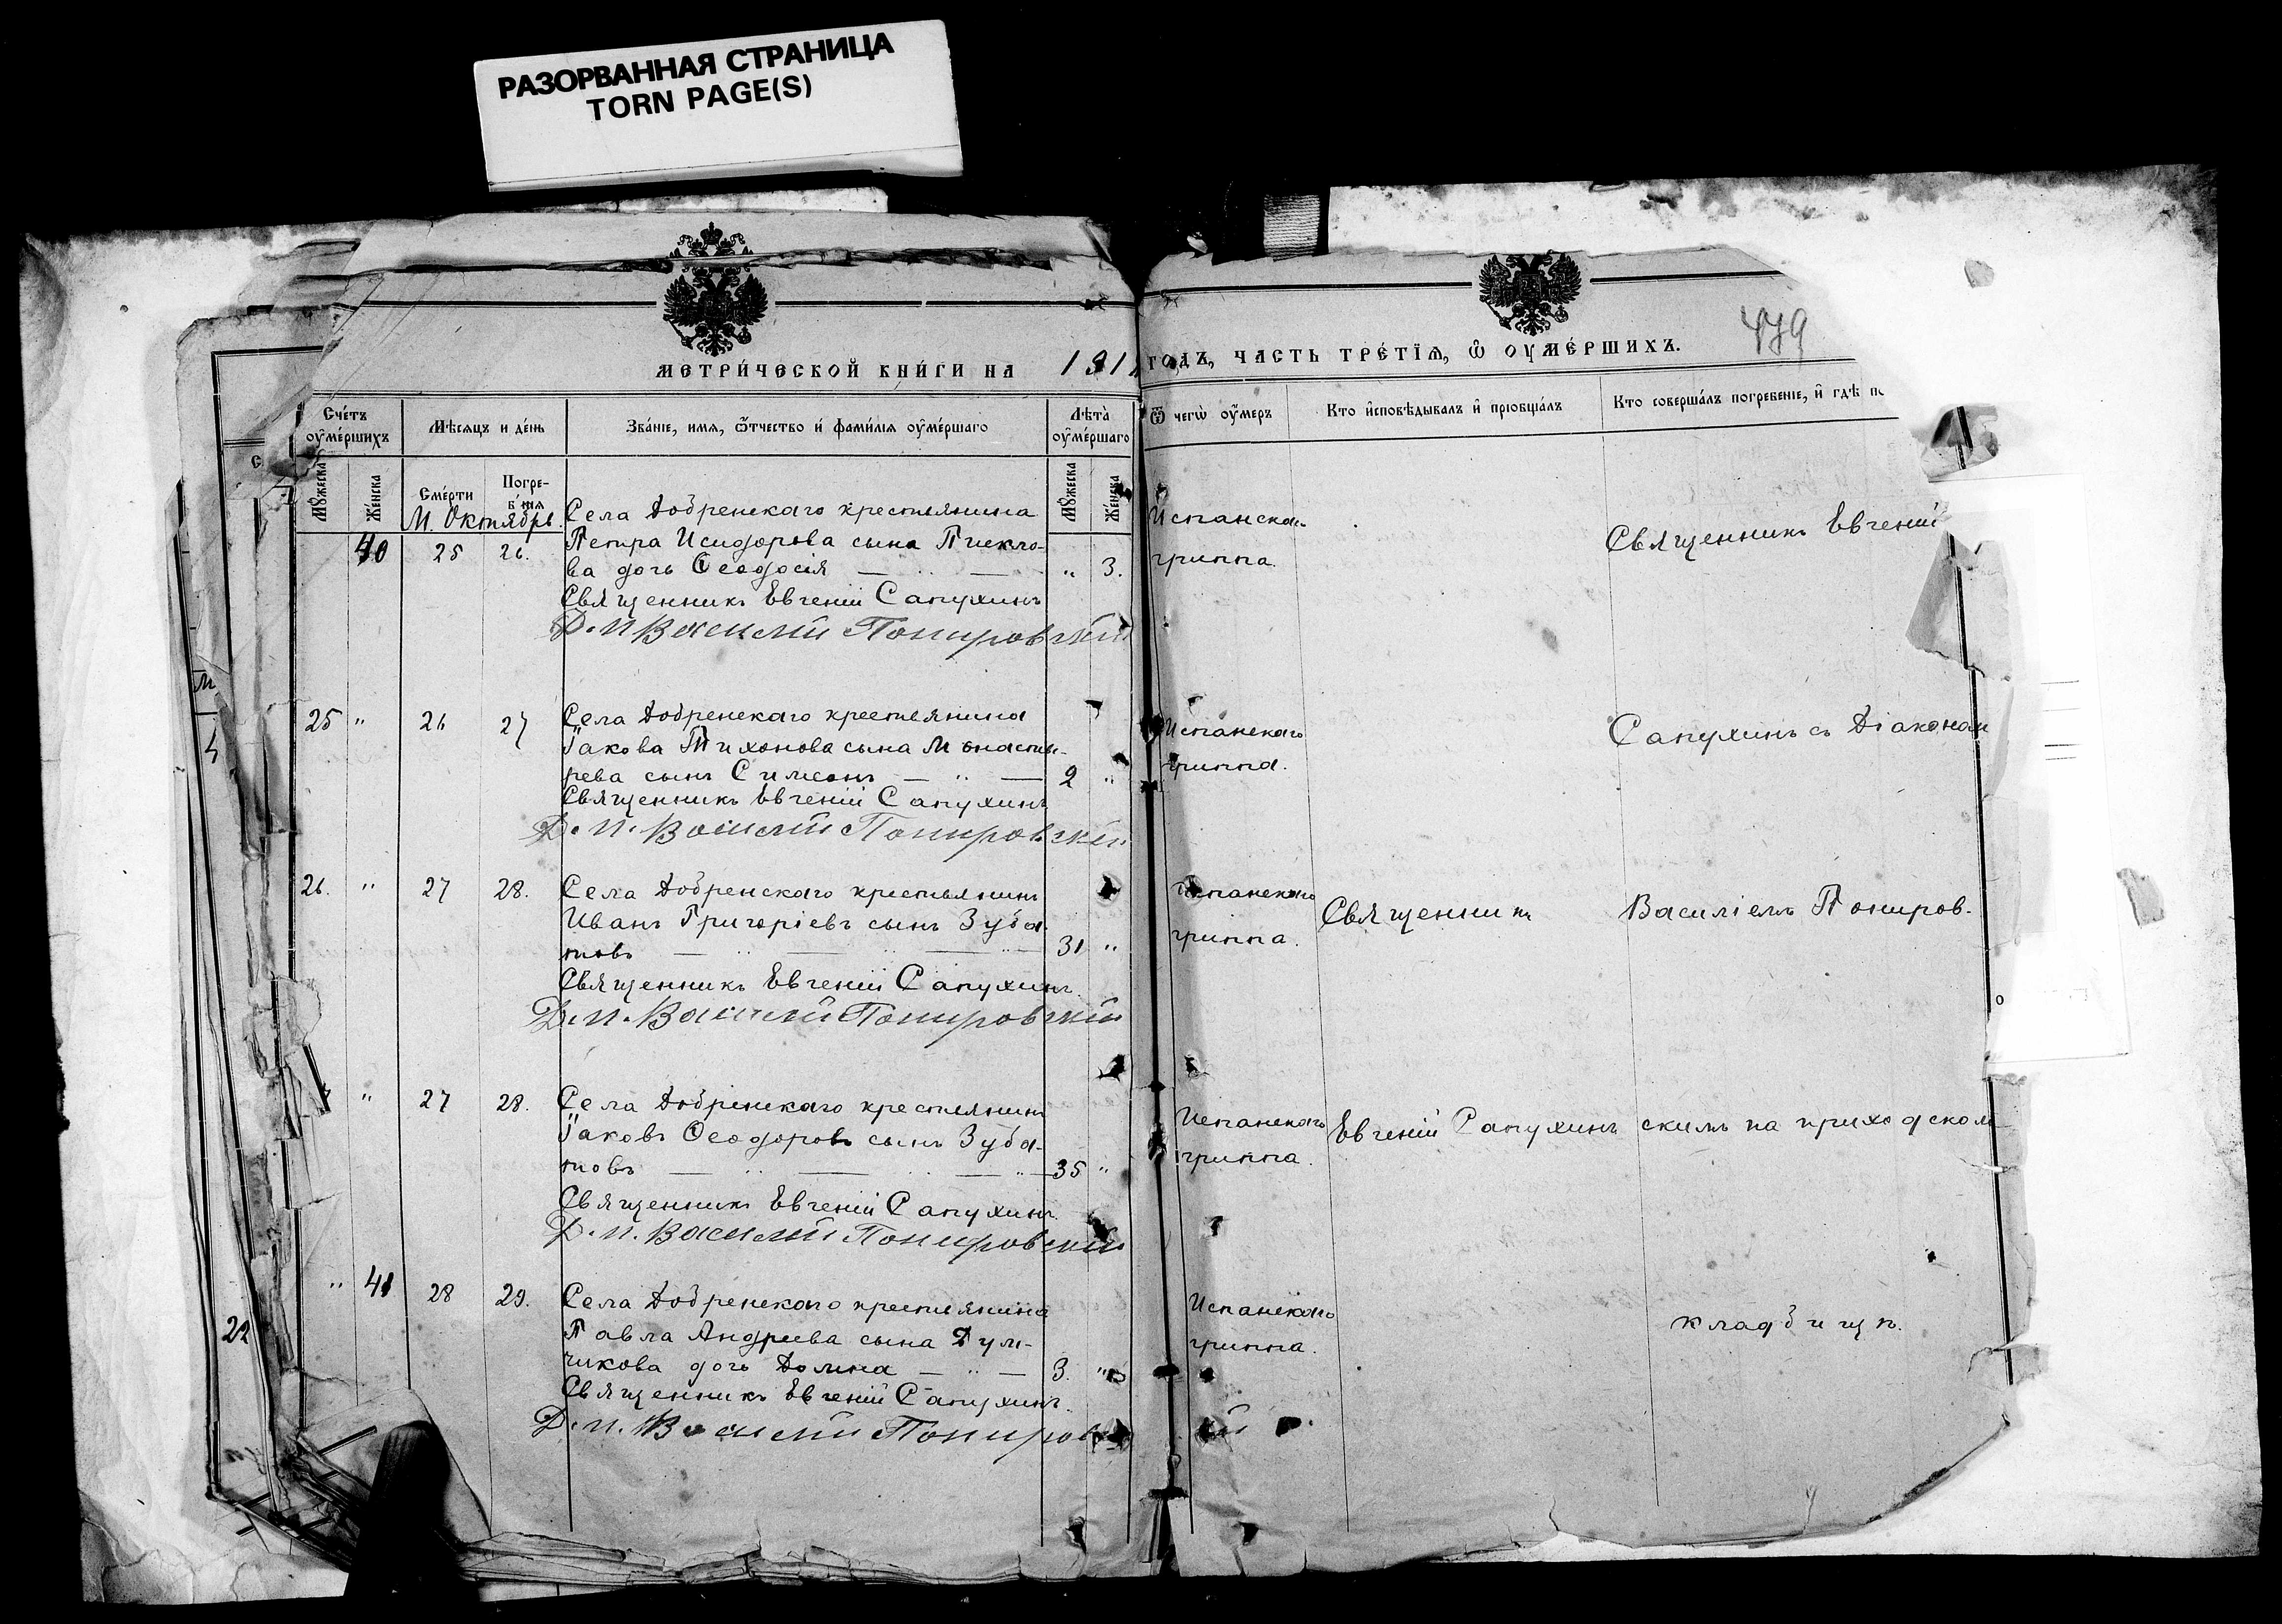 РАЗОРВАННАЯ СТРАНИЦА
TORN PAGE(S)
МЕТРИ́ЧЕСКОЙ КНИ́ГИ НА 191
ГОДЪ, ЧАСТЬ ТРЕ́ТЇѦ, Ѡ ОУМЕ́РШИХЪ.
479
Сче́тъ оуме́ршихъ
Мѣсѧцъ и де́нь
Зва́нїе, имѧ, ѿтчество и́ фами́лїѧ оуме́ршаго
Лѣта̀ оуме́ршаго
Ѿ чегѡ̀ оу́меръ
Кто и̂сповѣ́дывалъ и̂ прїѡбща́лъ
Кто соверша́лъ погребе́нїе, и̂ гдѣ̀ по
Мꙋ́жеска
Же́нска
Сме́рти
Погребе́нїѧ
Мꙋ́жеска
Же́нска
М. Октябрь
40 25 26.
Села Добренскаго крестьянина
Петра Исидорова сына
ва дочь Ѳеодосія — „ — „ 3.
Священникъ Евгеній Сапухинъ
Д. п. Василій Понировскій
Испанскаго
гриппа.
Священникъ Евгеній
25 „ 26 27
Села Добренскаго крестьянина
Іакова Тихонова сына Монасты-
рева сынъ Симеонъ — „ — 2 „
Священникъ Евгеній Сапухинъ
Д. п. Василій Понировскій
Испанскаго
гриппа.
Сапухинъ съ Діакономъ
26. „ 27 28.
Села Добренскаго крестьянинъ
Иванъ Григоріевъ сынъ Зуба-
товъ — „ — „ — 31 „
Священникъ Евгеній Сапухинъ.
Д. п. Василій Понировскій
Испанскаго
гриппа.
Священникъ
Василіемъ Пониров-
„ 27 28.
Села Добренскаго крестьянинъ
Іаковъ Ѳеодоровъ сынъ Зуба-
товъ — „ — „ — „ — 35 „
Священникъ Евгеній Сапухинъ.
Д. п. Василій Понировскій
Испанскаго
гриппа.
Евгеній Сапухинъ
скимъ на приходском
„ 41 28 29.
Села Добренскаго крестьянина
Павла Андреева сына
чикова дочь Домна — „ — 3. „
Священникъ Евгеній Сапухинъ.
Д. п. Василій Пониров
Испанскаго
гриппа.
кладбищѣ.
22